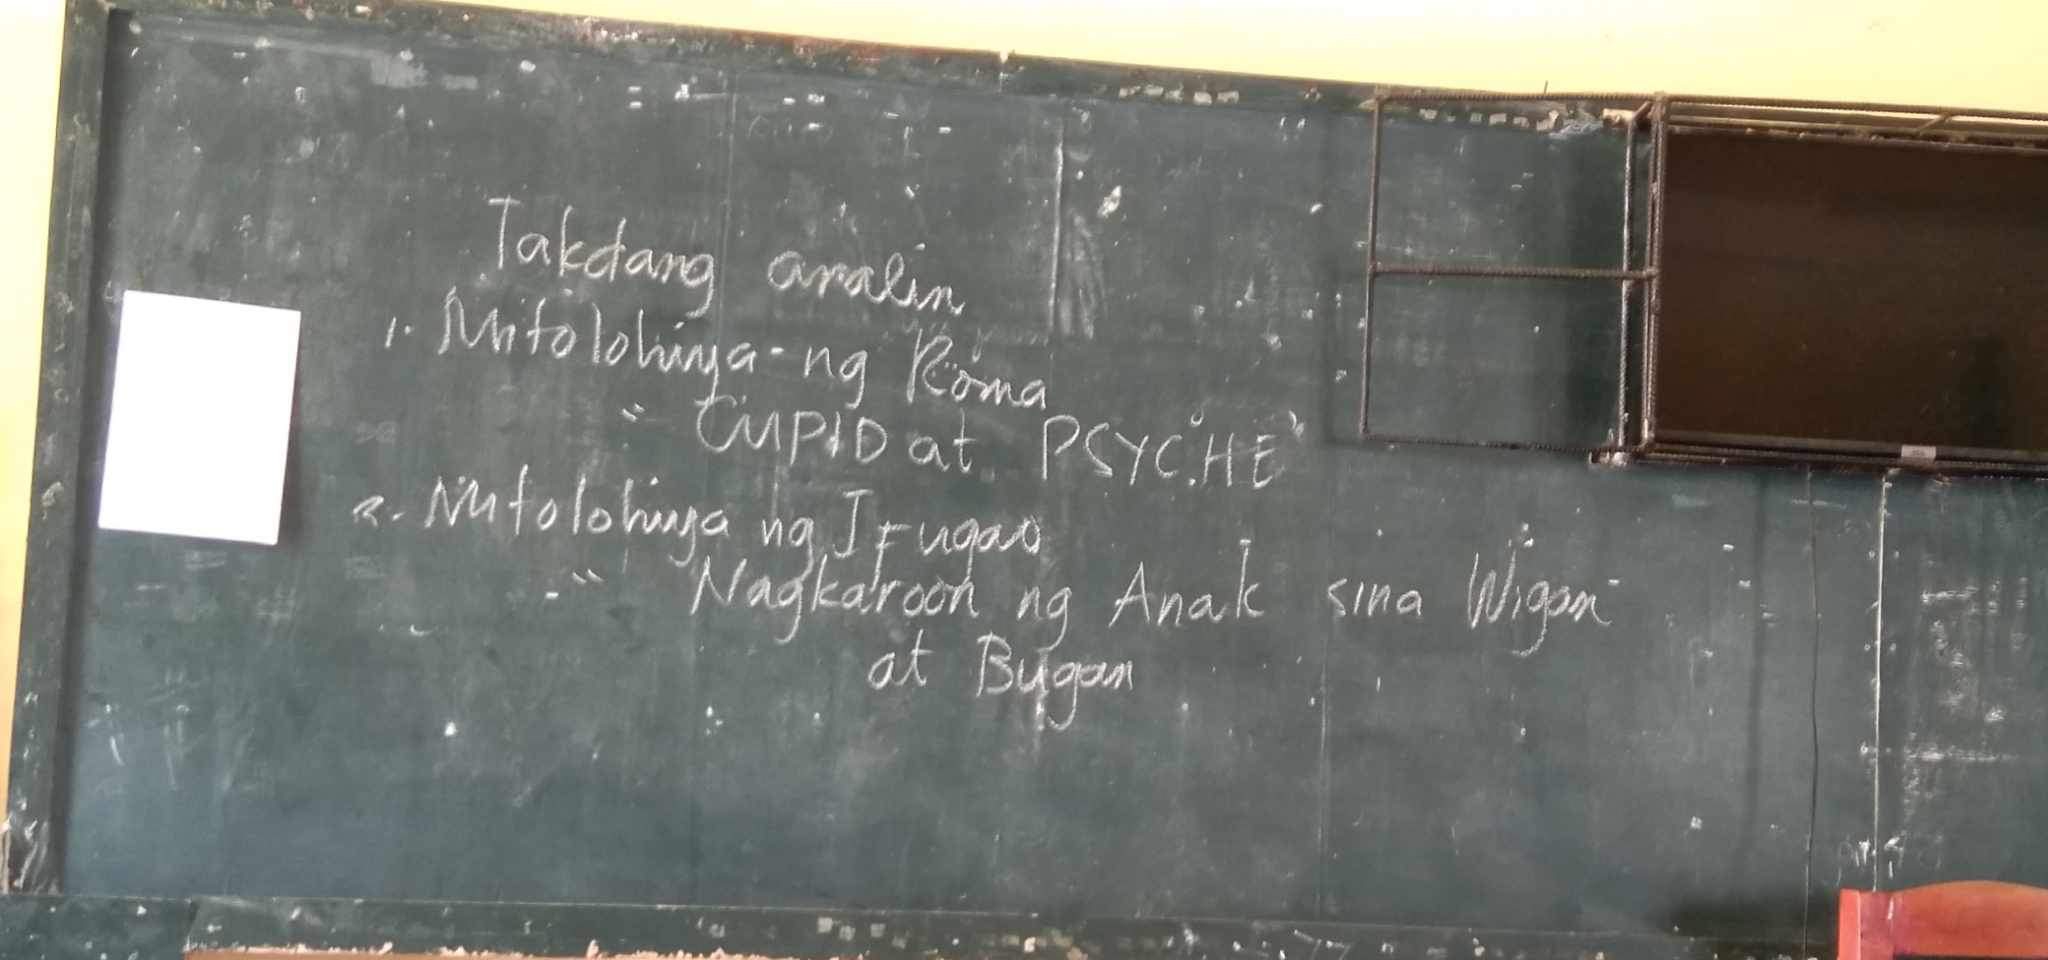 Takdang aralin
1. Mitolohiya ng Roma
" CUPID at PSYCHE"
2. Mitolohiya ng Ifugao
- " Nagkaroon ng Anak sina Wigan
at Bugan